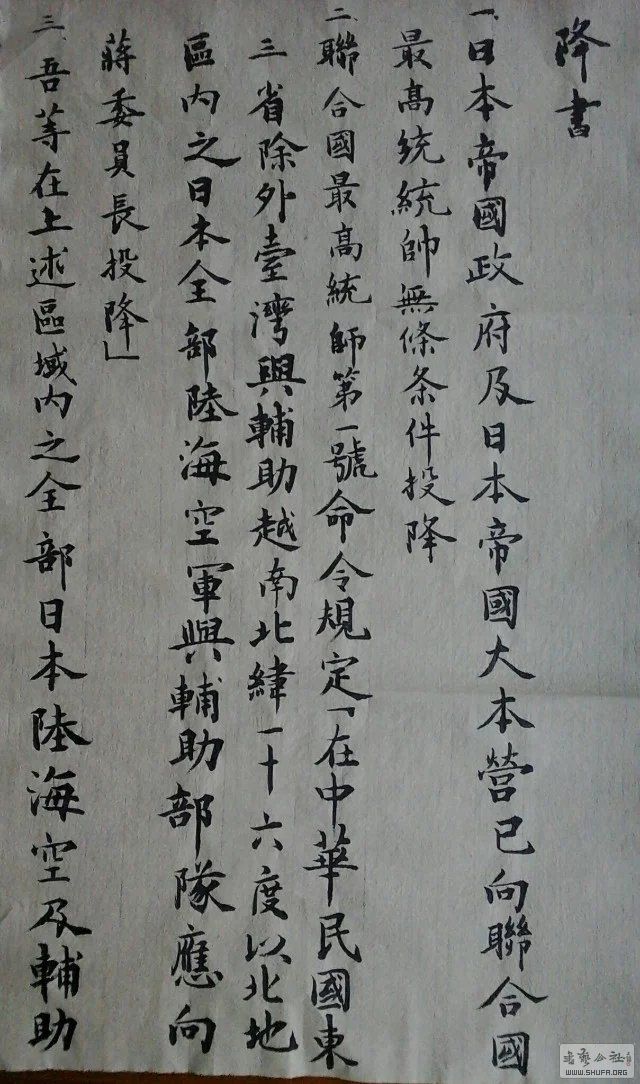 降書
一、日本帝國政府及日本帝國大本營已向聯合國
最高統統帥無條条件投降
二、聯合國最高統師第一號命令規定「在中華民國東
三省除外臺灣與輔助越南北緯一十六度以北地
區內之日本全部陸海空軍與輔助部隊應向
蔣委員長投降」
三、吾等在上述區域內之全部日本陸海空及輔助
WWW.SHUFA.ORG